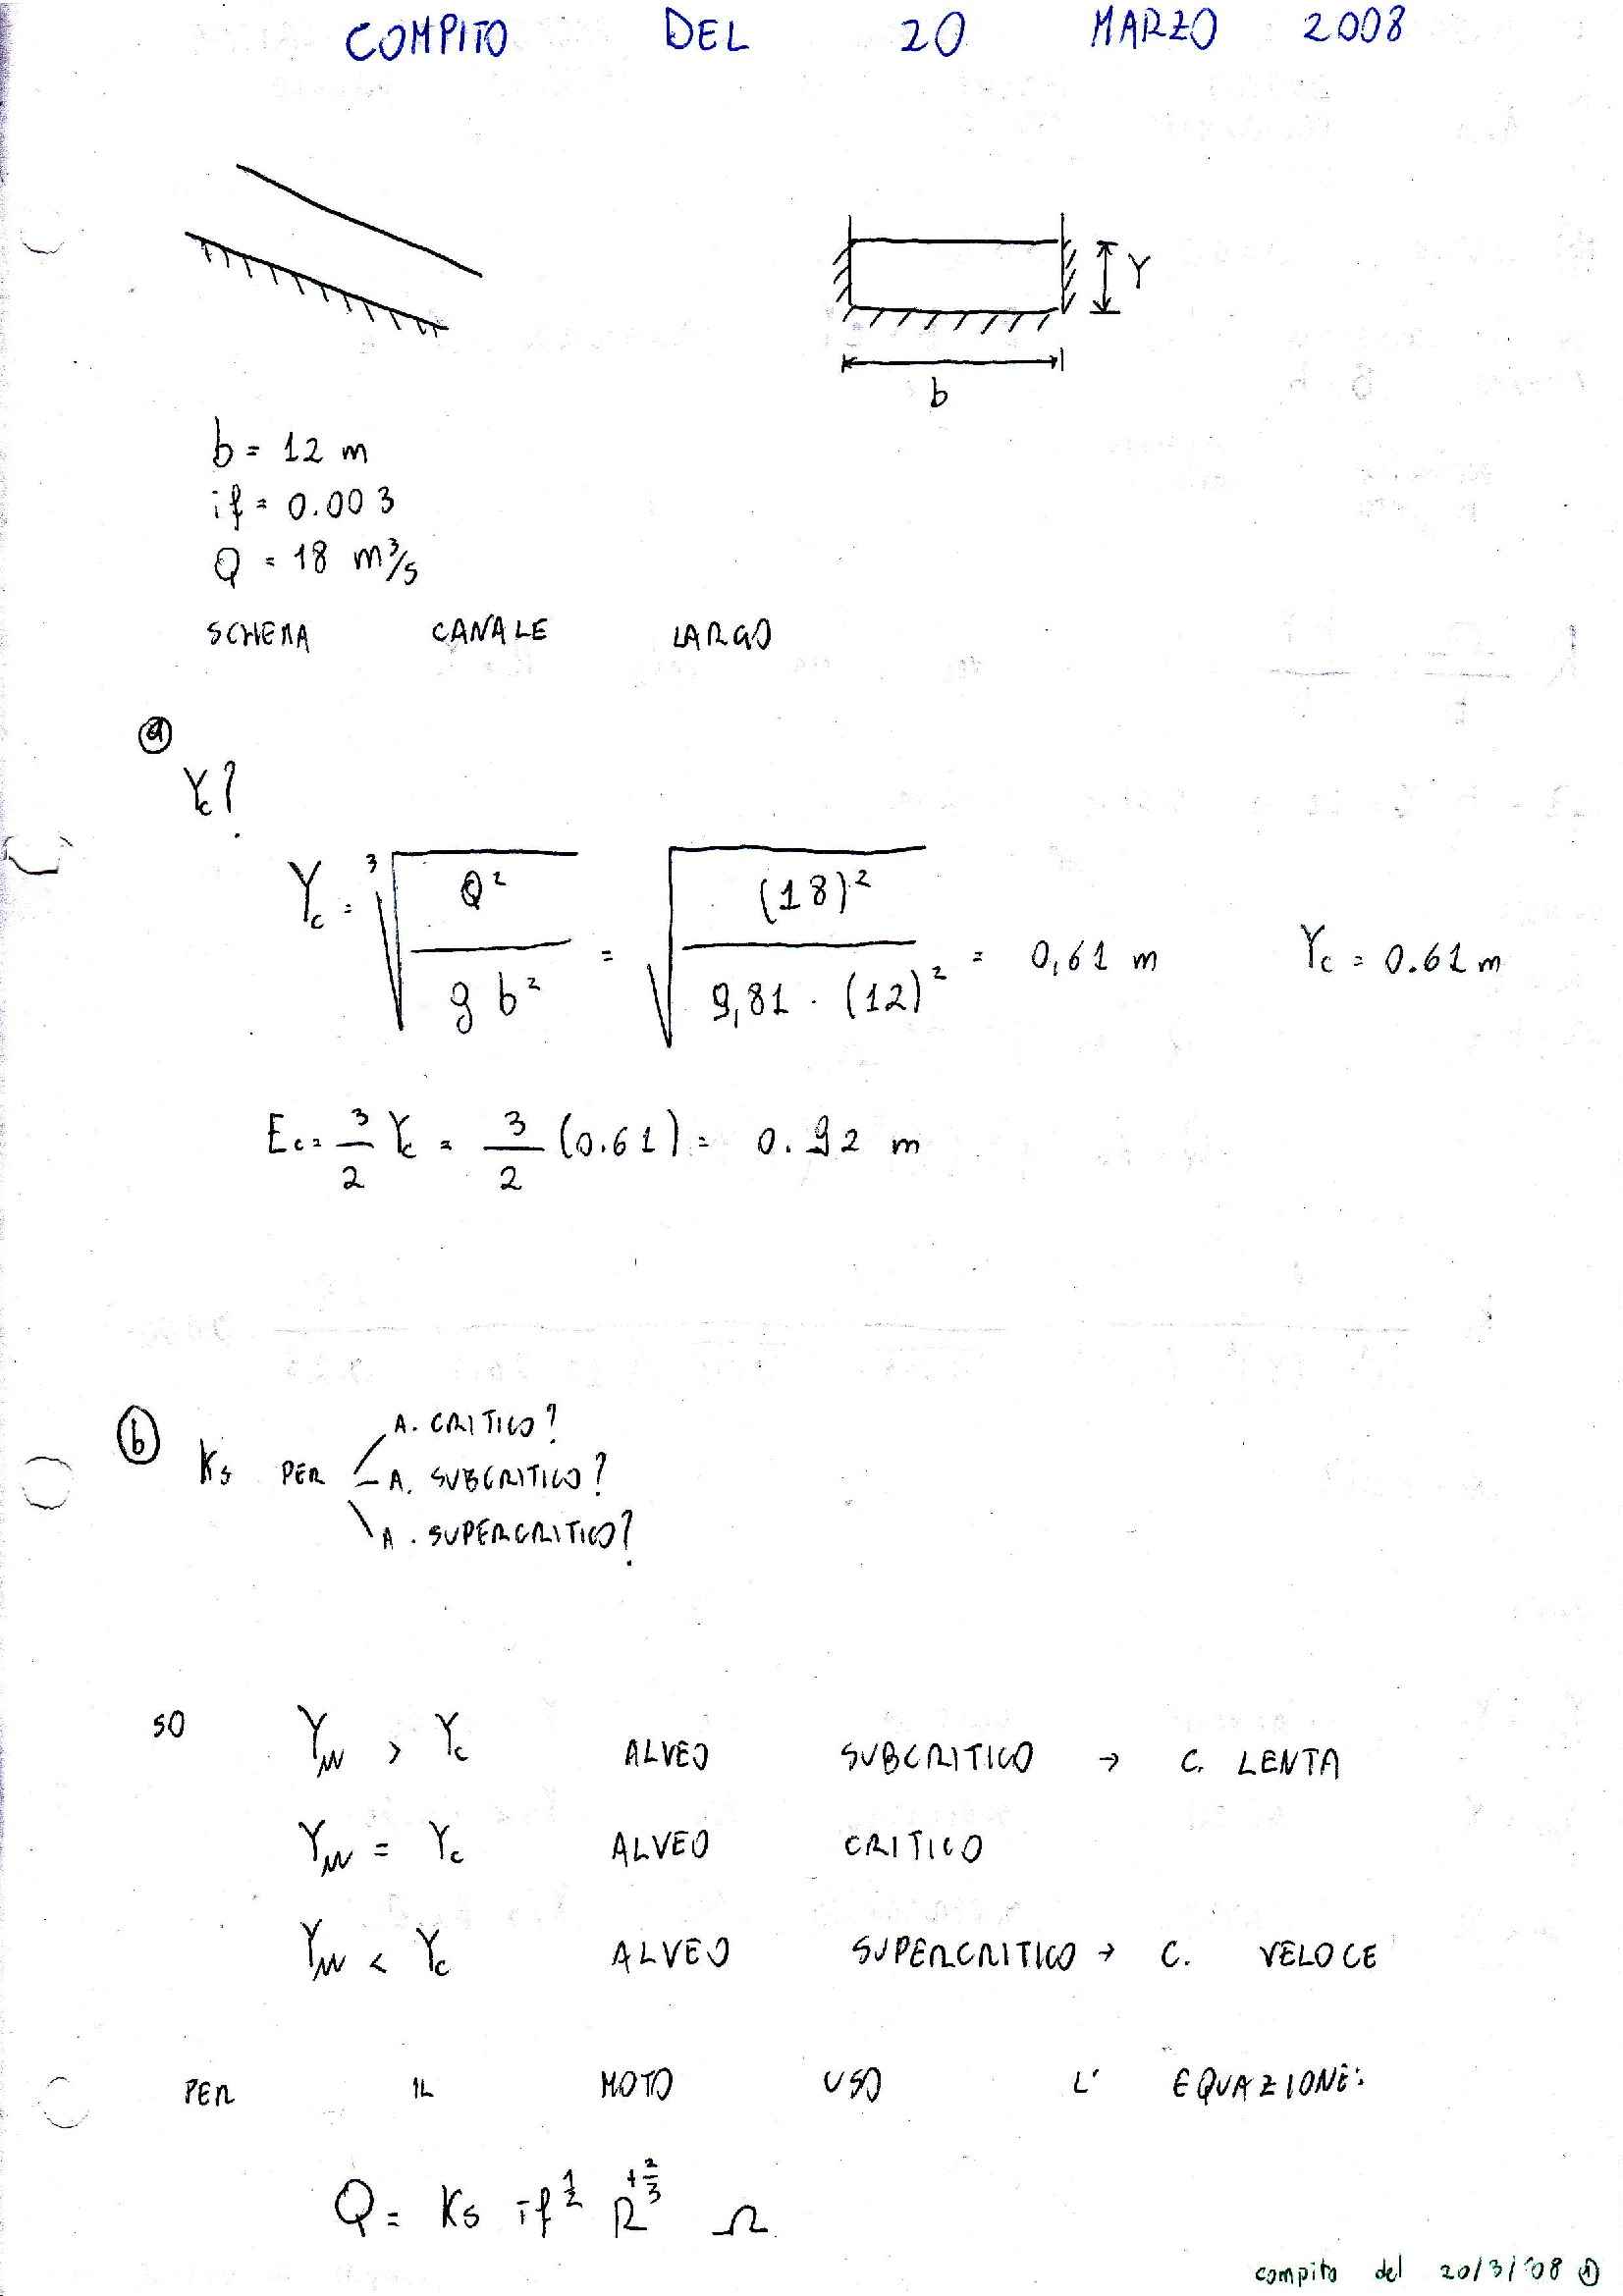 COMPITO DEL 20 MARZO 2008
Y
b
b = 12 m
if = 0.003
Q = 18 m³/s
SCHEMA CANALE LARGO
a
Yc?
Yc = ³√(Q² / g b²) = √((18)² / 9,81 · (12)²) = 0,61 m Yc = 0.61 m
Ec = 3/2 Yc = 3/2 (0.61) = 0.92 m
b
Ks PER
A. CRITICO?
A. SUBCRITICO?
A. SUPERCRITICO?
SO Yu > Yc ALVEO SUBCRITICO → C. LENTA
Yu = Yc ALVEO CRITICO
Yu < Yc ALVEO SUPERCRITICO → C. VELOCE
PER IL MOTO USO L' EQUAZIONE:
Q = Ks if^1/2 R^+2/3 Ω
compito del 20/3/'08 1